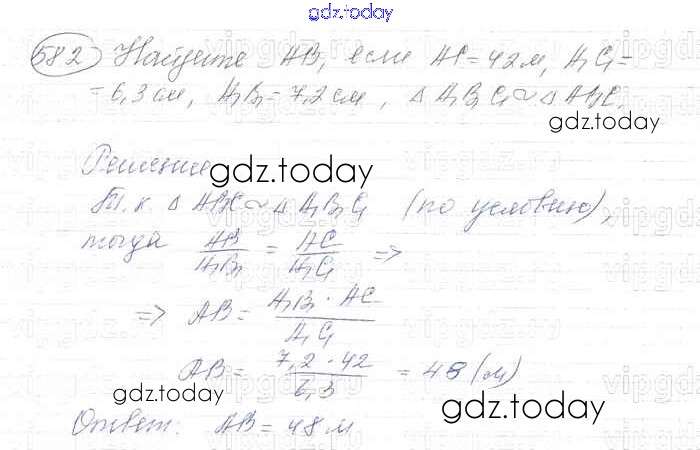 gdz.today
582 Найдите AB, если AC = 42 м, A₁C₁ =
= 6,3 см, A₁B₁ = 7,2 см, Δ A₁B₁C₁ ~ Δ ABC.
gdz.today
Решение
gdz.today
Т.к. Δ ABC ~ Δ A₁B₁C₁ (по условию),
тогда AB/A₁B₁ = AC/A₁C₁ =>
=> AB = A₁B₁ · AC/A₁C₁
AB = 7,2 · 42/6,3 = 48 (м)
gdz.today
gdz.today
Ответ: AB = 48 м